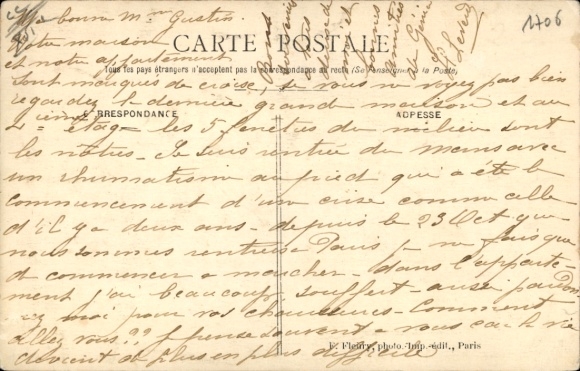 1706
Ma bonne Mme Gustin
CARTE POSTALE
Notre maison
et notre appartement
Tous les pays étrangers n'acceptent pas la correspondance au recto (Se renseigner à la Poste)
sont marqués de croix, si vous ne voyez pas bien
regardez la dernière grande maison et au
CORRESPONDANCE
ADRESSE
2ième étage les 5 fenêtres du milieu sont
les nôtres. Je suis rentrée du Mans avec
un rhumatisme au pied qui a été le
commencement d'une crise comme celle
d'il y a deux ans. depuis le 23 Oct que
nous sommes rentrés à Paris je ne fais que
de commencer à marcher. dans l'apparte-
ment j'ai beaucoup souffert. aussi pardon
nez moi pour vos chaussures. Comment
allez vous?? Je pense souvent à vous car la vie
devient de plus en plus difficile
E. Fleury, photo.-Imp.-édit., Paris
Bons
amitiés
de